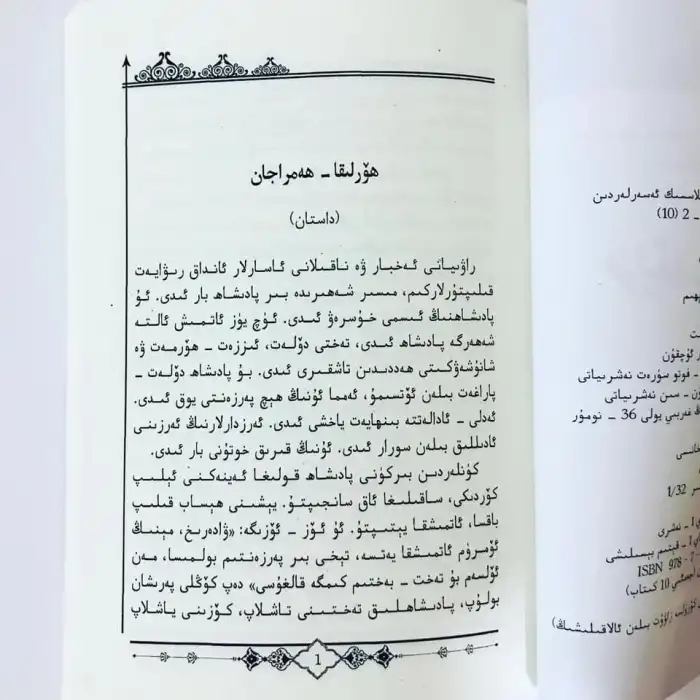 هۆرلىقا - ھەمراجان
(داستان)
راۋىياتى ئەخبار ۋە ناقىلانى ئاسارلار ئانداق رىۋايەت
قىلىپتۇرلاركىم، مىسىر شەھىرىدە بىر پادىشاھ بار ئىدى. ئۇ
پادىشاھنىڭ ئىسمى خۇسرەۋ ئىدى. ئۈچ يۈز ئاتمىش ئالتە
شەھەرگە پادىشاھ ئىدى، تەختى دۆلەت، ئىززەت - ھۆرمەت ۋە
شانۇشەۋكىتى ھەددىدىن تاشقىرى ئىدى. بۇ پادىشاھ دۆلەت -
پاراغەت بىلەن ئۆتسىمۇ، ئەمما ئۇنىڭ ھېچ پەرزەنتى يوق ئىدى.
ئەدلى - ئادالەتتە بىنھايەت ياخشى ئىدى. ئەرزدارلارنىڭ ئەرزىنى
ئادىللىق بىلەن سورار ئىدى. ئۇنىڭ قىرىق خوتۇنى بار ئىدى.
كۈنلەردىن بىركۈنى پادىشاھ قولىغا ئەينەكنى ئېلىپ
كۆردىكى، ساقىلىغا ئاق سانجىپتۇ. يېشىنى ھېساب قىلىپ
باقسا، ئاتمىشقا يېتىپتۇ. ئۇ ئۆز - ئۆزىگە: «ۋادەرىخ، مېنىڭ
ئۆمرۈم ئاتمىشقا يەتسە، تېخى بىر پەرزەنتىم بولمىسا، مەن
ئۆلسەم بۇ تەخت - بەختىم كىمگە قالغۇسى» دەپ كۆڭلى پەرىشان
بولۇپ، پادىشاھلىق تەختىنى تاشلاپ، كۆزىنى ياشلاپ
1
ئەسەرلەردىن
(10) 2 -
- فوتو سۈرەت نەشرىياتى
- سىن نەشرىياتى
غەربىي يولى 36 - نومۇر
1/32
1 - نەشرى
1 - قېتىم بېسىلىشى
ISBN 978 - 7
10 كىتاب)
بىلەن ئالاقىلىشىڭ)